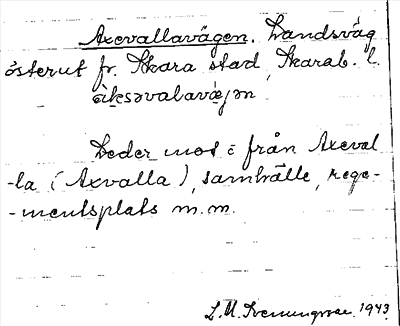 Axevallavägen. Landsväg
österut fr. Skara stad, Skarab. l.
àksəvalavǽjən
Leder mot o från Axeval-
-la (Axvalla), samhälle, rege-
-mentsplats m.m.
1943